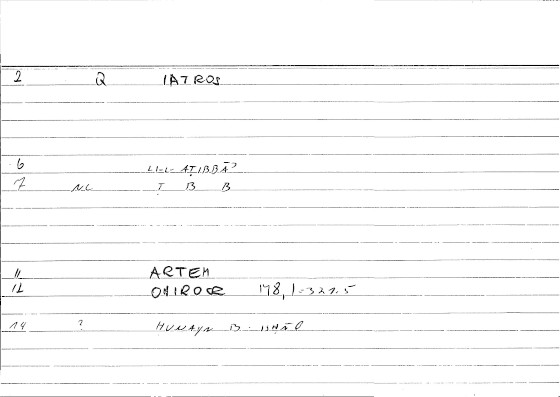 2 Q IATROS
6 LI-L-AṬIBBĀʾ
7 NC Ṭ B B
11 ARTEM
12 ONIROCR 178,1=321.5
14 ? HUNAYN B.